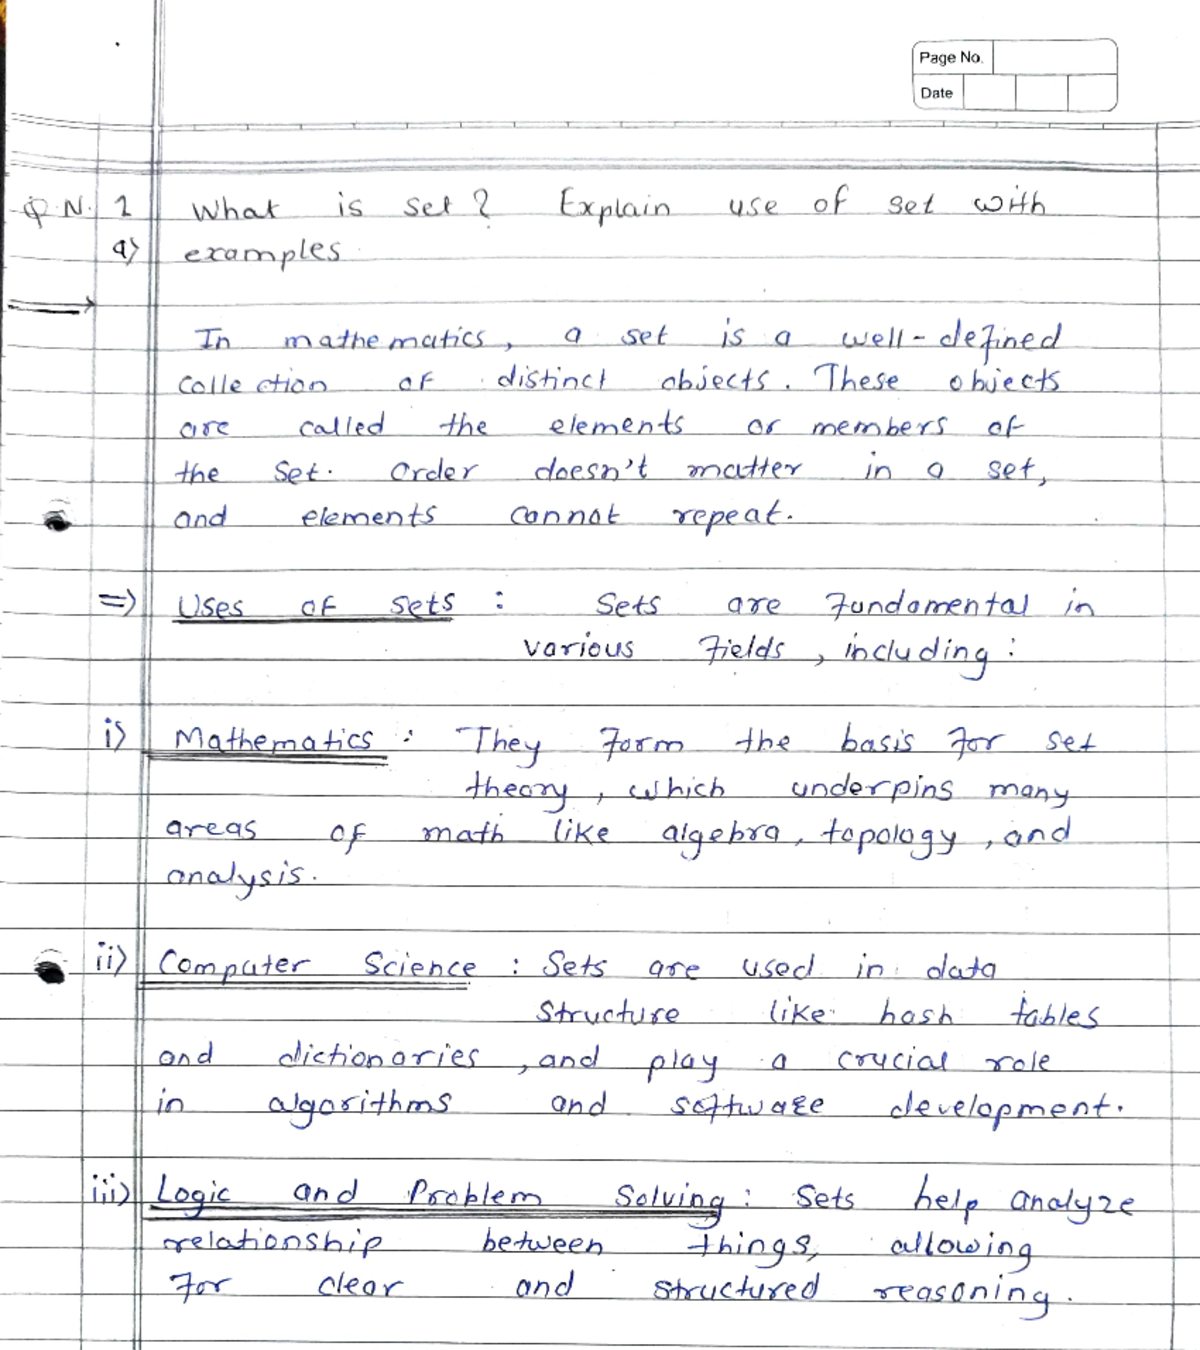 Page No.
Date
Q.N. 1 What is set? Explain use of set with
a) examples.
In mathematics, a set is a well-defined
collection of distinct objects. These objects
are called the elements or members of
the set. Order doesn't matter in a set,
and elements cannot repeat.
=> Uses of sets : Sets are fundamental in
various fields, including :
i) Mathematics : They form the basis for set
theory, which underpins many
areas of math like algebra, topology, and
analysis.
ii) Computer Science : Sets are used in data
structure like hash tables
and dictionaries, and play a crucial role
in algorithms and software development.
iii) Logic and Problem Solving : Sets help analyze
relationship between things, allowing
for clear and structured reasoning.